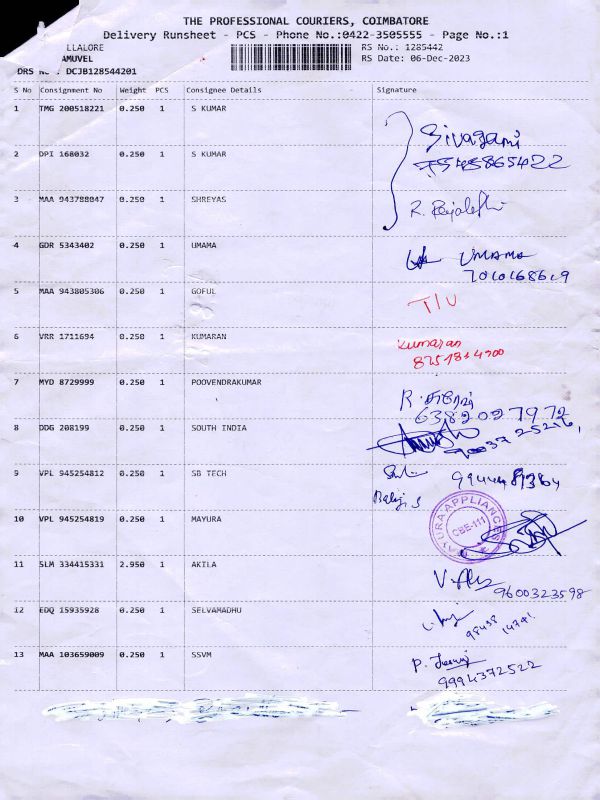 THE PROFESSIONAL COURIERS, COIMBATORE
Delivery Runsheet - PCS - Phone No.:0422-3505555 - Page No.:1
LLALORE RS No.: 1285442
AMUVEL RS Date: 06-Dec-2023
DRS No : DCJB128544201
S No Consignment No Weight PCS Consignee Details Signature
1 TMG 200518221 0.250 1 S KUMAR
Sivagami
2 DPI 168032 0.250 1 S KUMAR
3 MAA 943788047 0.250 1 SHREYAS
4 GDR 5343402 0.250 1 UMAMA UMAMA
5 MAA 943805306 0.250 1 GOFUL T/U
6 VRR 1711694 0.250 1 KUMARAN Kumaran
8251814700
7 MYD 8729999 0.250 1 POOVENDRAKUMAR
6382027972
8 DDG 208199 0.250 1 SOUTH INDIA
9 VPL 945254812 0.250 1 SB TECH
Balaji S
10 VPL 945254819 0.250 1 MAYURA CBE-111
11 SLM 334415331 2.950 1 AKILA
9600323598
12 EDQ 15935928 0.250 1 SELVAMADHU
13 MAA 103659009 0.250 1 SSVM
9994372522